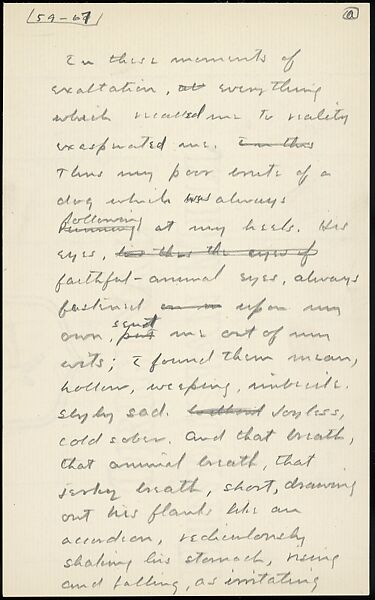 59-67
a
In these moments of
exaltation, at everything
which recalled me to reality
exasperated me. In this
Thus my poor brute of a
dog which was always
following
running at my heels. His
eyes, his thus the eyes of
faithful-animal eyes, always
fastened on upon my
sent
own, put me out of my
wits; I found them mean,
hollow, weeping, imbecile.
slyly sad. without Joyless,
cold sober. And that breath,
that animal breath, that
jerky breath, short, drawing
out his flanks like an
accordeon, rediculously
shaking his stomach, rising
and falling, as irritating